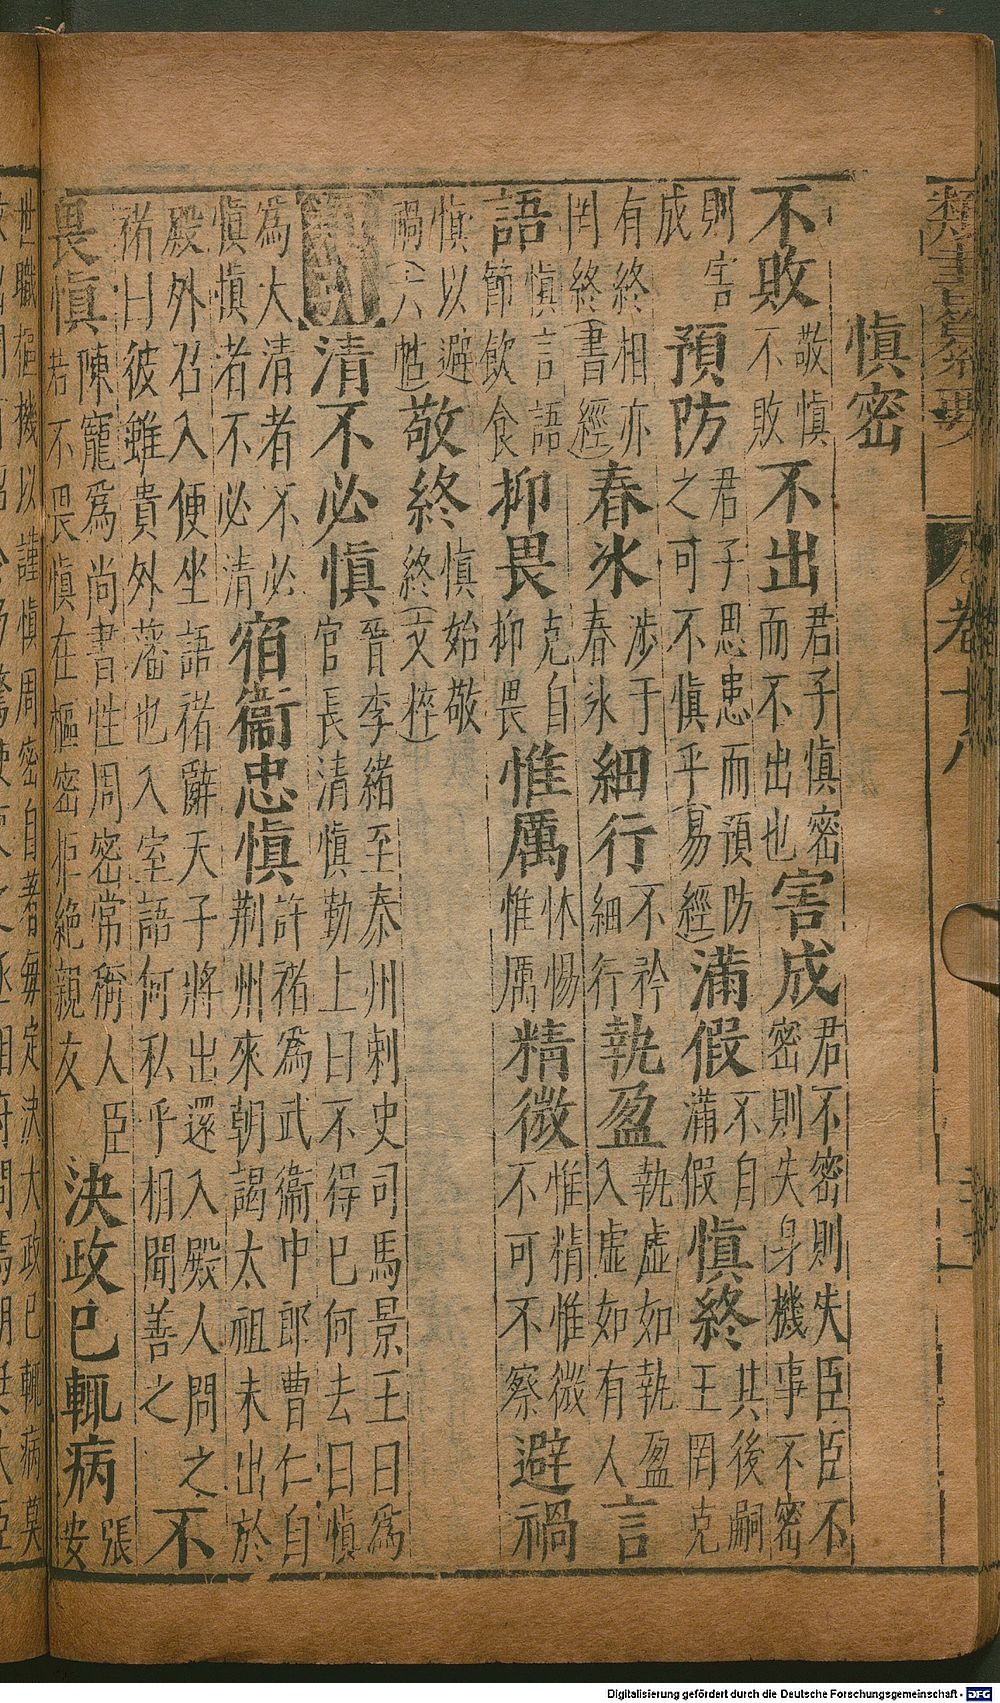 類書纂要 卷十八
慎密
不敗 敬慎不敗 不出 君子慎密而不出也 害成 君不密則失臣臣不密則失身機事不密
則害成 預防 君子思患而預防之可不慎乎(易經) 滿假 不自滿假 慎終 其後嗣王罔克
有終相亦罔終(書經) 春氷 涉于春氷 細行 不矜細行 執盈 執虛如執盈入虛如有人 言
語 慎言語節飲食 抑畏 克自抑畏 惟厲 怵惕惟厲 精微 惟精惟微不可不察 避禍
慎以避禍(六韜) 敬終 慎始敬終(文粹)
清不必慎 晉李緒至秦州刺史司馬景王曰為官長清慎勤上曰不得已何去曰慎
為大清者不必慎慎者不必清 宿衞忠慎 許褚爲武衞中郎曹仁自荆州來朝謁太祖未出於
殿外召入便坐語褚辭天子將出還入殿人問之褚曰彼雖貴外藩也入室語何私乎相聞善之 不
畏慎 陳寵爲尚書性周密常稱人臣若不畏慎在樞密拒絕親友 決政已輒病 張安
世職樞機以謹慎周密自著每定決大政已輒病莫
Digitalisierung gefördert durch die Deutsche Forschungsgemeinschaft - DFG